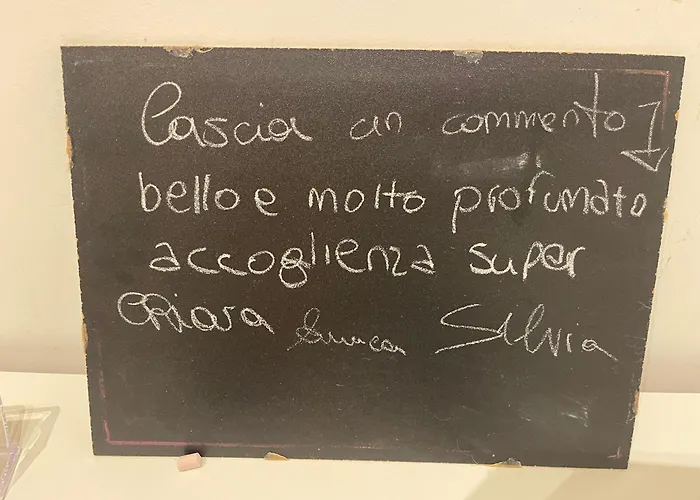 Lascia un commento
bello e molto profumato
accoglienza super
Chiara Silvia